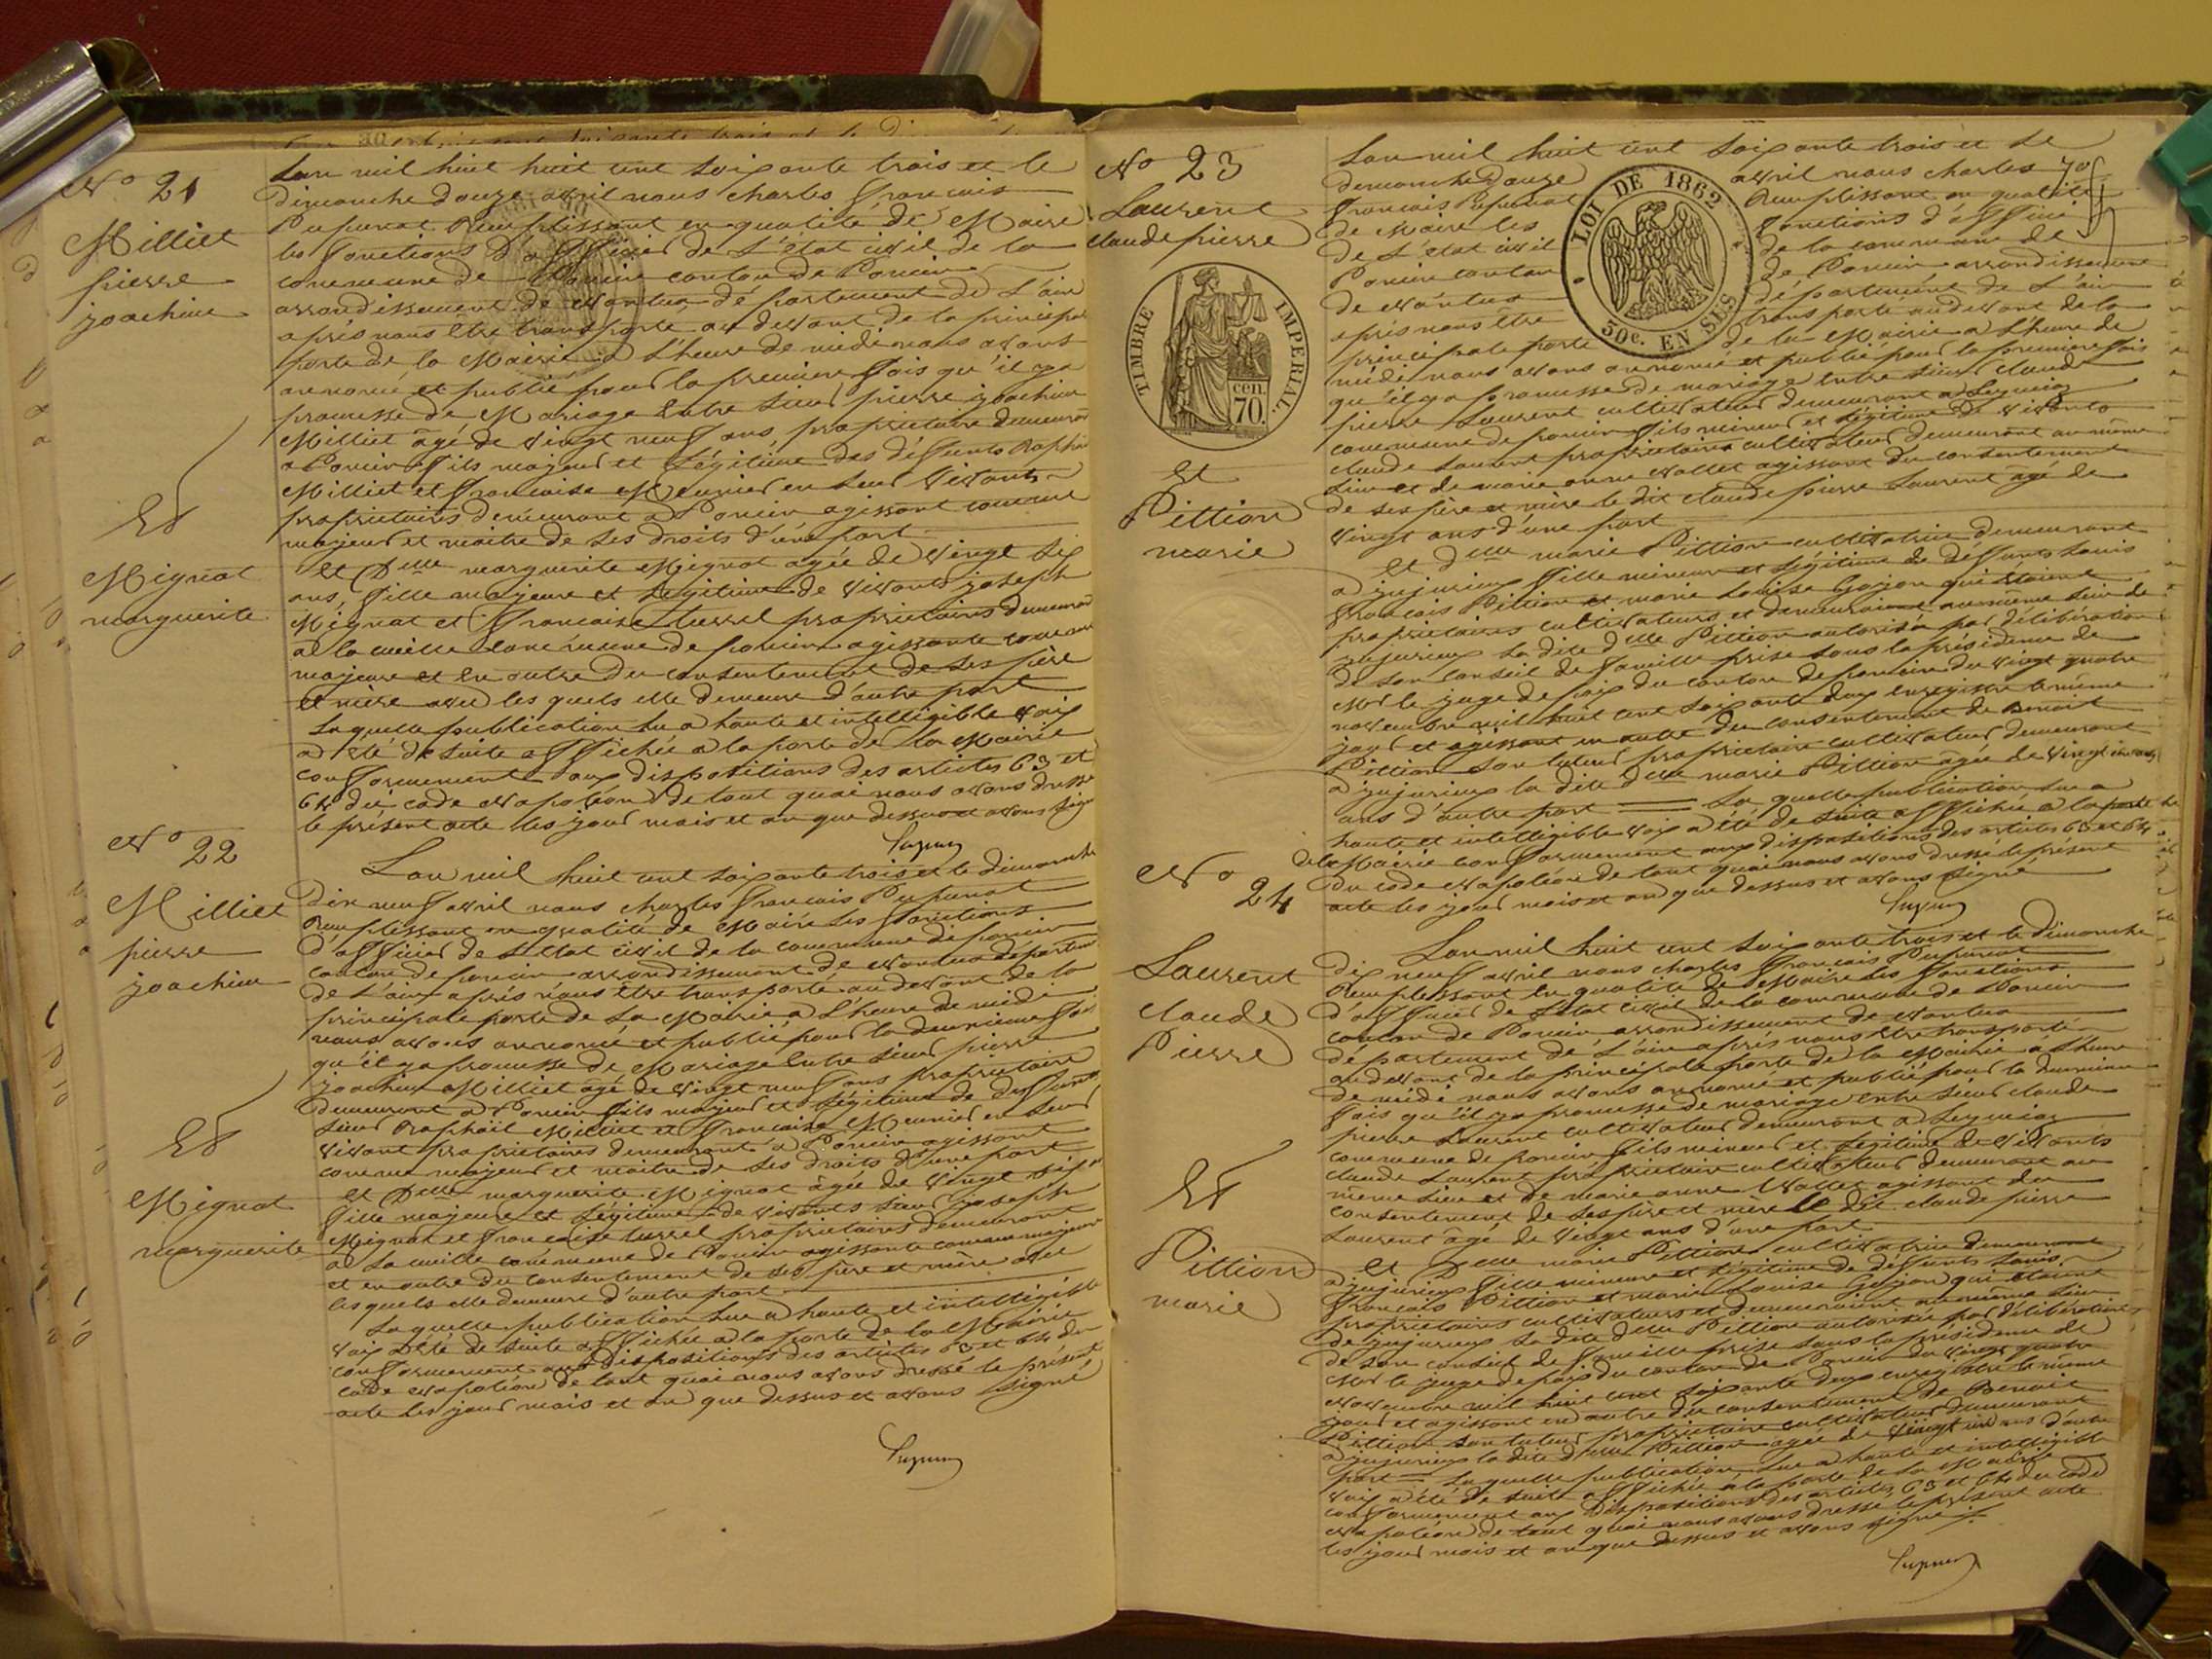 No 21
Milliet
pierre
joachim
Et
Mignat
marguerite
Lan mil huit huit cent soixante trois et le
dimanche douze avril nous charles francois
Pupunat Remplissant en qualité de Maire
les fonctions d'officier de l'état civil de la
commune de Poncin canton de Poncin
arrondissement de Nantua département de L'ain
après nous être transporté au devant de la principa
porte de la Mairie a L'heure de midi nous avons
annoncé et publié pour la premiere fois qu'il y a
promesse de Mariage Entre Sieur pierre joachim
Milliet âgé de vingt neuf ans, propriétaire demeurant
a Poncin fils majeur et Légitime des défunts Raphael
Milliet et francoise Meunier en leur vivants
proprietaires demeurant a Poncin agissant comme
majeur et maitre de ses droits d'une part
Et Delle marguerite Mignat agée de vingt six
ans, fille majeure et Légitime de vivants joseph
Mignat et francoise turrel proprietaires demeurant
a la cueille commune de poncin agissante comme
majeure et en outre du consentement de ses père
et mère avec les quels elle demeure d'autre part
Laquelle publication lue a haute et intelligible voix
a été de suite affichée a la porte de la Mairie
conformement aux dispositions des articles 63 et
64 du code Napoléon de tout quoi nous avons dressé
le présent acte les jour mois et an que dessus et avons signé
No 22
Milliet
pierre
joachim
Et
Mignat
marguerite
Lan mil huit cent soixante trois et le dimanche
Dix neuf avril nous charles francois Pupunat
Remplissant en qualité de Maire les fonctions
d'officier de L'état civil de la commune de poncin
canton de poncin arrondissement de Nantua départem
de L'ain après nous être transporté au devant de la
principale porte de la Mairie a L'heure de midi
nous avons annoncé et publié pour la deuxieme fois
qu'il y a promesse de Mariage Entre Sieur pierre
joachim Milliet âgé de vingt neuf ans proprietaire
demeurant a Poncin fils majeur et Légitime de défunts
Sieur Raphaël Milliet et francoise Meunier en leur
vivant proprietaires demeurant a Poncin agissant
comme majeur et maitre de ses droits d'une part
Et Delle marguerite Mignat âgée de vingt six
fille majeure et Légitime de vivants Sieur joseph
Mignat et francoise turrel proprietaires demeurant
a La cueille commune de Poncin agissante comme majeure
et en outre du consentement de ses père et mère avec
les quels elle demeure d'autre part
Laquelle publication lue a haute et intelligible
voix a été de suite affichée a la porte de la Mairie
conformement aux dispositions des articles 63 et 64 du
code Napoléon de tout quoi nous avons dressé le présent
acte les jour mois et an que dessus et avons signé
No 23
Laurent
claude pierre
TIMBRE IMPERIAL
cen. 70.
Et
Pittion
marie
LOI DE 1862
50c. EN SUS
Lan mil huit cent soixante trois et le
dimanche douze avril nous charles
francois Pupunat Remplissant en qualité
de Maire les fonctions d'officier
de L'état civil de la commune de
Poncin canton de Poncin arrondissement
de Nantua département de L'ain
après nous être transporté au devant de la
principale porte de la Mairie a L'heure de
midi nous avons annoncé et publié pour la premiere fois
qu'il y a promesse de mariage Entre Sieur claude
pierre Laurent cultivateur demeurant a Leymiaz
commune de poncin fils mineur et Légitime de vivants
claude Laurent proprietaire cultivateur demeurant au même
Lieu et de marie anne Vallet agissant du consentement
de ses père et mère le dit claude pierre Laurent âgé de
vingt ans d'une part
Et delle marie Pittion cultivatrice demeurant
a jujurieux fille mineure et Légitime de défunts Louis
francois Pittion et marie Louise Gojon qui étaient
proprietaires cultivateurs et demeuraient au même lieu de
jujurieux La dite delle Pittion autorisée par délibération
de son conseil de famille prise sous la présidence de
Mr le juge de paix du canton de poncin du vingt quatre
novembre mil huit cent soixante deux enregistré le même
jour et agissant en outre du consentement de Benoit
Pittion son tuteur proprietaire cultivateur demeurant
a jujurieux la dite delle marie Pittion âgée de vingt un ans
ans d'autre part La quelle publication lue a
haute et intelligible voix a été de suite affichée a la porte
de la Mairie conformement aux dispositions des articles 63 et 64
du code Napoléon de tout quoi nous avons dressé le présent
acte les jour mois et an que dessus et avons signé
No 24
Laurent
claude
Pierre
Et
Pittion
marie
Lan mil huit cent soixante trois et le dimanche
dix neuf avril nous charles francois Pupunat
Remplissant en qualité de Maire les fonctions
d'officier de L'état civil de la commune de Poncin
canton de Poncin arrondissement de Nantua
département de L'ain après nous être transporté
au devant de la principale porte de la Mairie a L'heure
de midi nous avons annoncé et publié pour la deuxieme
fois qu'il y a promesse de mariage entre Sieur claude
pierre Laurent cultivateur demeurant a Leymiaz
commune de poncin fils mineur et Légitime de vivants
claude Laurent proprietaire cultivateur demeurant au
même Lieu et de marie anne Vallet agissant du
consentement de ses pere et mère le dit claude pierre
Laurent âgé de vingt ans d'une part
Et Delle marie Pittion cultivatrice demeurant
a jujurieux fille mineure et Légitime de défunts Louis
francois Pittion et marie Louise Gojon qui étaient
proprietaires cultivateurs et demeuraient au même Lieu
de jujurieux La dite delle Pittion autorisée par délibération
de son conseil de famille prise sous la présidence de
Mr le juge de paix du canton de Poncin du vingt quatre
novembre mil huit cent soixante deux enregistré le même
jour et agissant en outre du consentement de Benoit
Pittion son tuteur proprietaire cultivateur demeurant
a jujurieux la dite delle Pittion agée de vingt un ans d'autre
part La quelle publication lue a haute et intelligible
voix a été de suite affichée a la porte de la Mairie
conformement aux dispositions des articles 63 et 64 du code
Napoléon de tout quoi nous avons dressé le présent acte
les jour mois et an que dessus et avons signé